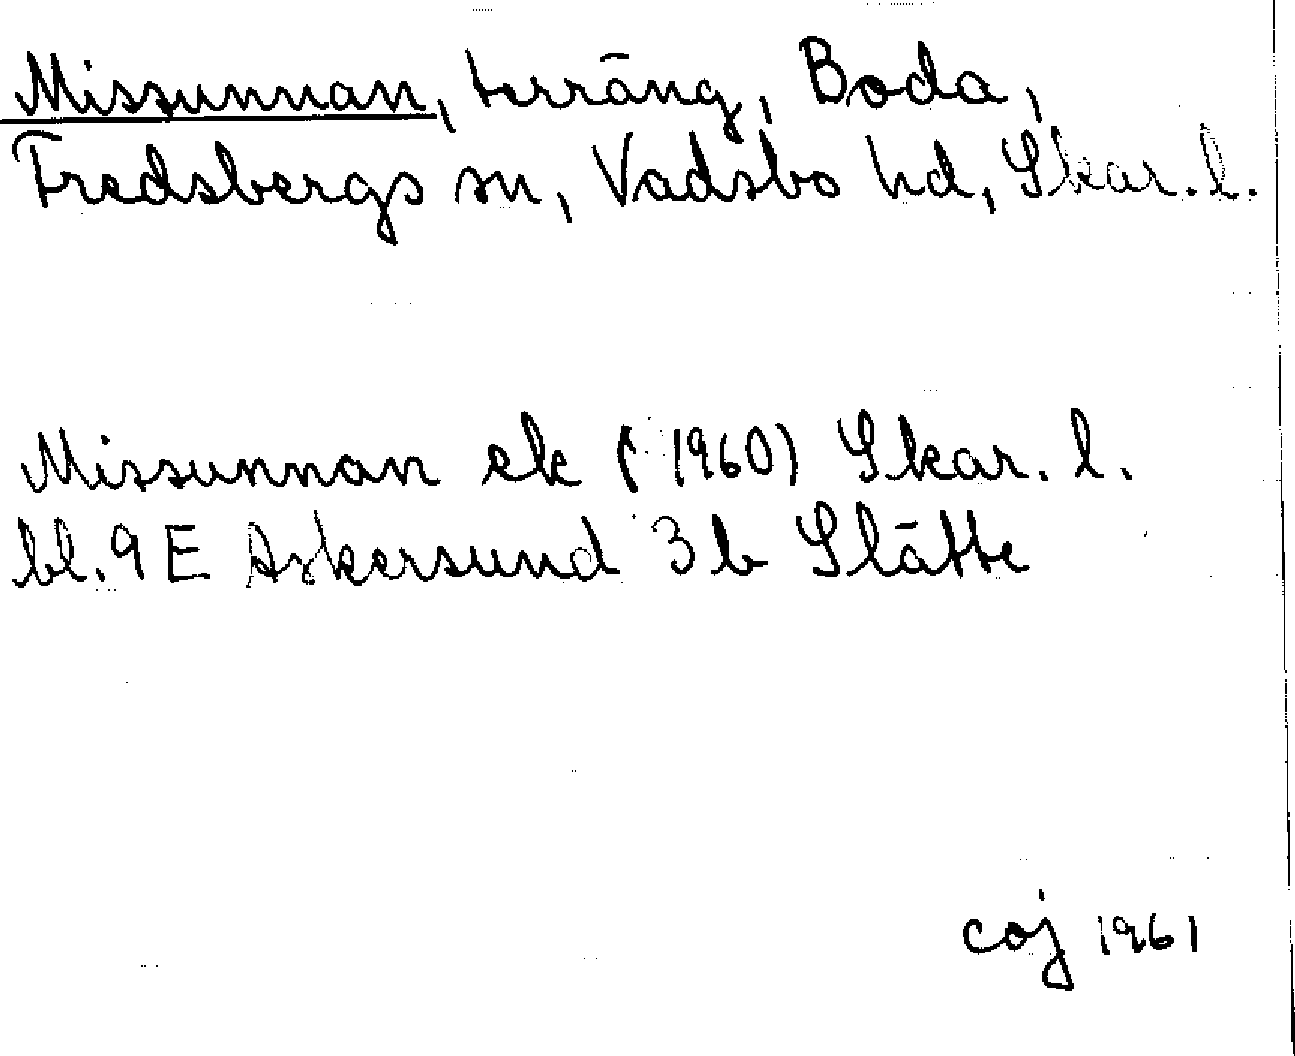 Missunnan, terräng, Boda,
Fredsbergs sn, Vadsbo hd, Skar. l.
Missunnan ek (1960) Skar. l.
bl. 9 E Askersund 3 b Slätte
coj 1961